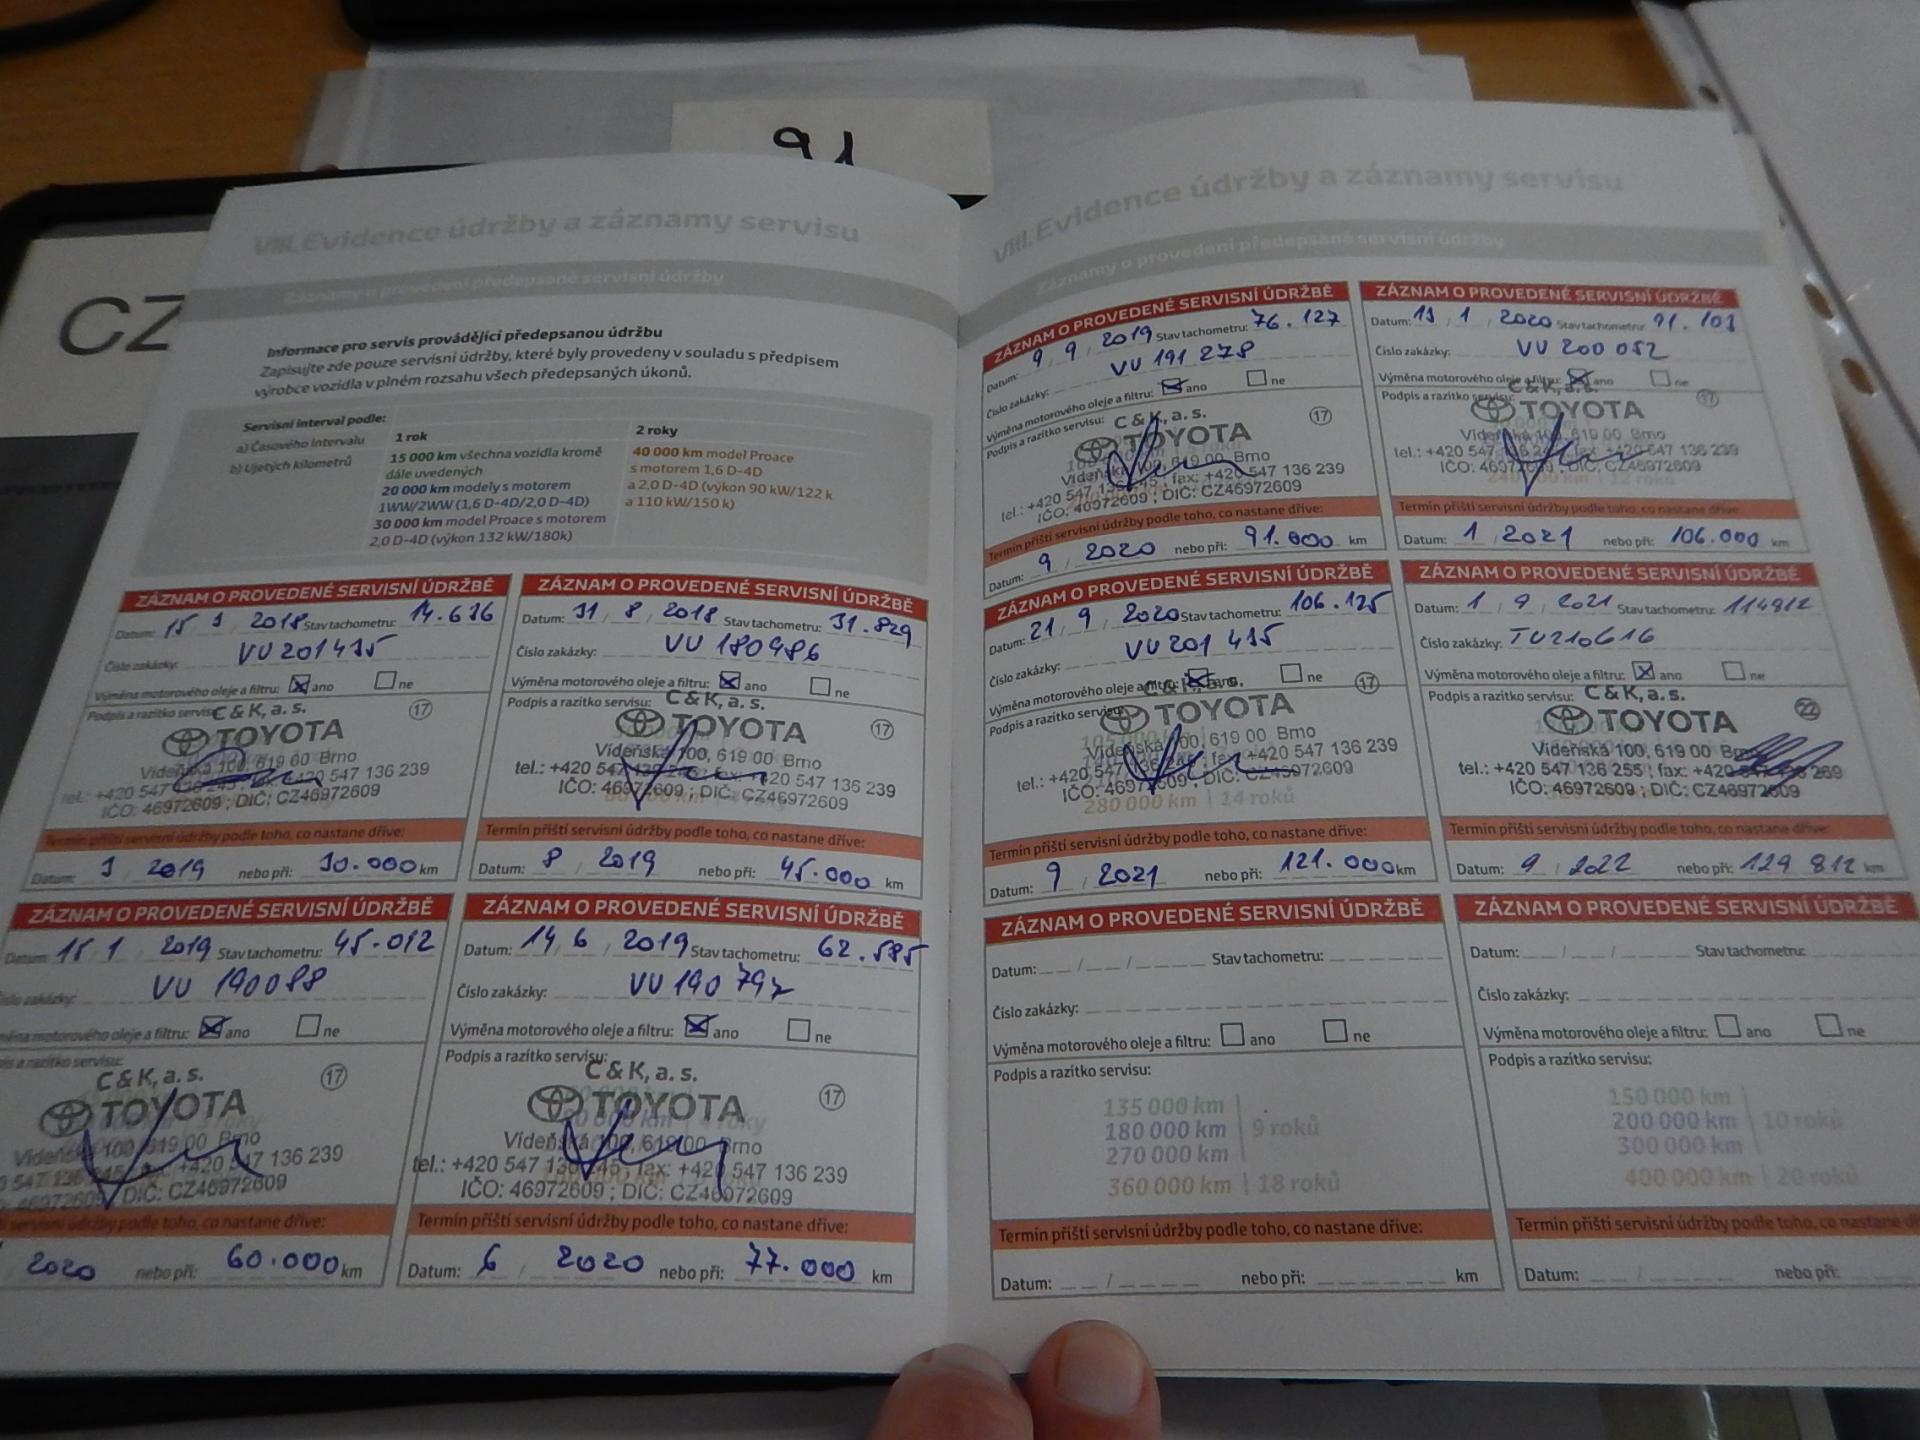 91
CZ
VIII. Evidence údržby a záznamy servisu
Záznamy o provedení předepsané servisní údržby
Informace pro servis provádějící předepsanou údržbu
Zapisujte zde pouze servisní údržby, které byly provedeny v souladu s předpisem
výrobce vozidla v plném rozsahu všech předepsaných úkonů.
Servisní interval podle:
a) Časového intervalu 1 rok 2 roky
b) Ujetých kilometrů
15 000 km všechna vozidla kromě
dále uvedených
20 000 km modely s motorem
1WW/2WW (1,6 D-4D/2,0 D-4D)
30 000 km model Proace s motorem
2,0 D-4D (výkon 132 kW/180k)
40 000 km model Proace
s motorem 1,6 D-4D
a 2,0 D-4D (výkon 90 kW/122 k
a 110 kW/150 k)
ZÁZNAM O PROVEDENÉ SERVISNÍ ÚDRŽBĚ
Datum: 15 / 2018 Stav tachometru: 14.636
Číslo zakázky: VU 201435
Výměna motorového oleje a filtru: ano ne
Podpis a razítko servisu:
C & K, a. s. 17
TOYOTA
Vídeňská 100, 619 00 Brno
tel.: +420 547 136 239
IČO: 46972609 ; DIČ: CZ46972609
Termín příští servisní údržby podle toho, co nastane dříve:
Datum: / 2019 nebo při: 30.000 km
ZÁZNAM O PROVEDENÉ SERVISNÍ ÚDRŽBĚ
Datum: 31 / 8 / 2018 Stav tachometru: 31.829
Číslo zakázky: VU 180986
Výměna motorového oleje a filtru: ano ne
Podpis a razítko servisu:
C & K, a. s. 17
TOYOTA
Vídeňská 100, 619 00 Brno
tel.: +420 547 fax: +420 547 136 239
IČO: 46972609 ; DIČ: CZ46972609
Termín příští servisní údržby podle toho, co nastane dříve:
Datum: 8 / 2019 nebo při: 45.000 km
ZÁZNAM O PROVEDENÉ SERVISNÍ ÚDRŽBĚ
Datum: 15 / 1 / 2019 Stav tachometru: 45.012
VU 190088
ano ne
C & K, a. s. 17
TOYOTA
Vídeňská 100, 619 00 Brno
+420 547 136 239
46972609 ; DIČ: CZ46972609
servisní údržby podle toho, co nastane dříve:
2020 nebo při: 60.000 km
ZÁZNAM O PROVEDENÉ SERVISNÍ ÚDRŽBĚ
Datum: 14 / 6 / 2019 Stav tachometru: 62.585
Číslo zakázky: VU 190 797
Výměna motorového oleje a filtru: ano ne
Podpis a razítko servisu:
C & K, a. s. 17
TOYOTA
Vídeňská 100, 619 00 Brno
tel.: +420 547 136 245 ; fax: +420 547 136 239
IČO: 46972609 ; DIČ: CZ46972609
Termín příští servisní údržby podle toho, co nastane dříve:
Datum: 6 / 2020 nebo při: 77.000 km
VIII. Evidence údržby a záznamy servisu
Záznamy o provedení předepsané servisní údržby
ZÁZNAM O PROVEDENÉ SERVISNÍ ÚDRŽBĚ
Datum: 9 / 9 / 2019 Stav tachometru: 76.127
Číslo zakázky: VU 191 278
Výměna motorového oleje a filtru: ano ne
Podpis a razítko servisu:
C & K, a. s. 17
TOYOTA
Vídeňská 100, 619 00 Brno
tel.: +420 547 136 245 ; fax: +420 547 136 239
IČO: 46972609 ; DIČ: CZ46972609
Termín příští servisní údržby podle toho, co nastane dříve:
Datum: 9 / 2020 nebo při: 91.000 km
ZÁZNAM O PROVEDENÉ SERVISNÍ ÚDRŽBĚ
Datum: 13 / 1 / 2020 Stav tachometru: 91.103
Číslo zakázky: VU 200 052
Výměna motorového oleje a filtru: ano ne
Podpis a razítko servisu:
C & K, a. s. 17
TOYOTA
Vídeňská 100, 619 00 Brno
tel.: +420 547 fax: +420 547 136 239
IČO: 46972609 ; DIČ: CZ46972609
Termín příští servisní údržby podle toho, co nastane dříve:
Datum: 1 / 2021 nebo při: 106.000 km
ZÁZNAM O PROVEDENÉ SERVISNÍ ÚDRŽBĚ
Datum: 21 / 9 / 2020 Stav tachometru: 106.125
Číslo zakázky: VU 201 435
Výměna motorového oleje a filtru: ano ne
Podpis a razítko servisu:
C & K, a. s. 17
TOYOTA
Vídeňská 100, 619 00 Brno
tel.: +420 547 136 245 ; fax: +420 547 136 239
IČO: 46972609 ; DIČ: CZ46972609
280 000 km | 14 roků
Termín příští servisní údržby podle toho, co nastane dříve:
Datum: 9 / 2021 nebo při: 121.000 km
ZÁZNAM O PROVEDENÉ SERVISNÍ ÚDRŽBĚ
Datum: 1 / 9 / 2021 Stav tachometru: 114812
Číslo zakázky: TU210616
Výměna motorového oleje a filtru: ano ne
Podpis a razítko servisu:
C & K, a. s. 22
TOYOTA
Vídeňská 100, 619 00 Brno
tel.: +420 547 136 255 ; fax: +420 547 136 269
IČO: 46972609 ; DIČ: CZ46972609
Termín příští servisní údržby podle toho, co nastane dříve:
Datum: 9 / 2022 nebo při: 129 812 km
ZÁZNAM O PROVEDENÉ SERVISNÍ ÚDRŽBĚ
Datum: / / Stav tachometru:
Číslo zakázky:
Výměna motorového oleje a filtru: ano ne
Podpis a razítko servisu:
135 000 km
180 000 km 9 roků
270 000 km
360 000 km | 18 roků
Termín příští servisní údržby podle toho, co nastane dříve:
Datum: / nebo při: km
ZÁZNAM O PROVEDENÉ SERVISNÍ ÚDRŽBĚ
Datum: / / Stav tachometru:
Číslo zakázky:
Výměna motorového oleje a filtru: ano ne
Podpis a razítko servisu:
150 000 km
200 000 km 10 roků
300 000 km
400 000 km | 20 roků
Termín příští servisní údržby podle toho, co nastane
Datum: / nebo při: